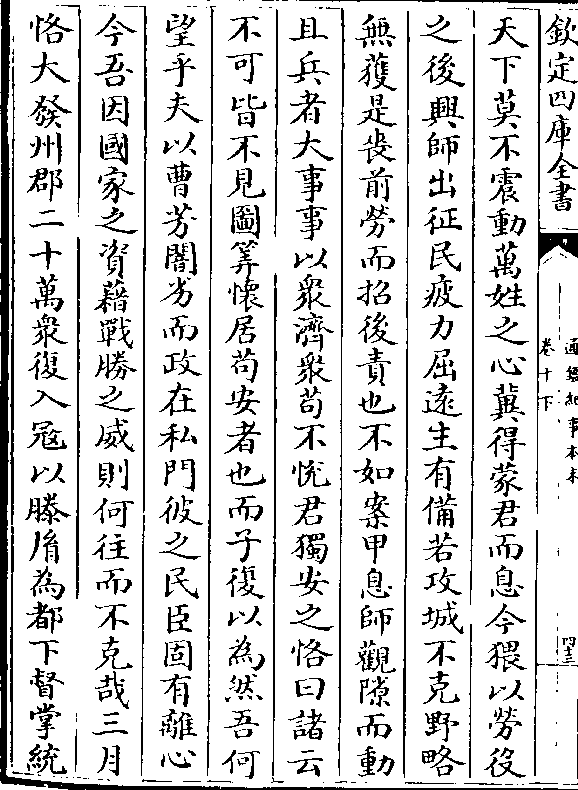 欽定四庫全書
通鑑紀事本末
卷十下
四十三
天下莫不震動萬姓之心冀得蒙君而息今猥以勞役
之後興師出征民疲力屈遠主有備若攻城不克野略
無獲是喪前勞而招後責也不如案甲息師觀隙而動
且兵者大事事以眾濟眾苟不悅君獨安之恪曰諸云
不可皆不見圖筭懷居苟安者也而子復以為然吾何
望乎夫以曹芳闇劣而政在私門彼之民臣固有離心
今吾因國家之資藉戰勝之威則何往而不克哉三月
恪大發州郡二十萬眾復入寇以滕胤為都下督掌統